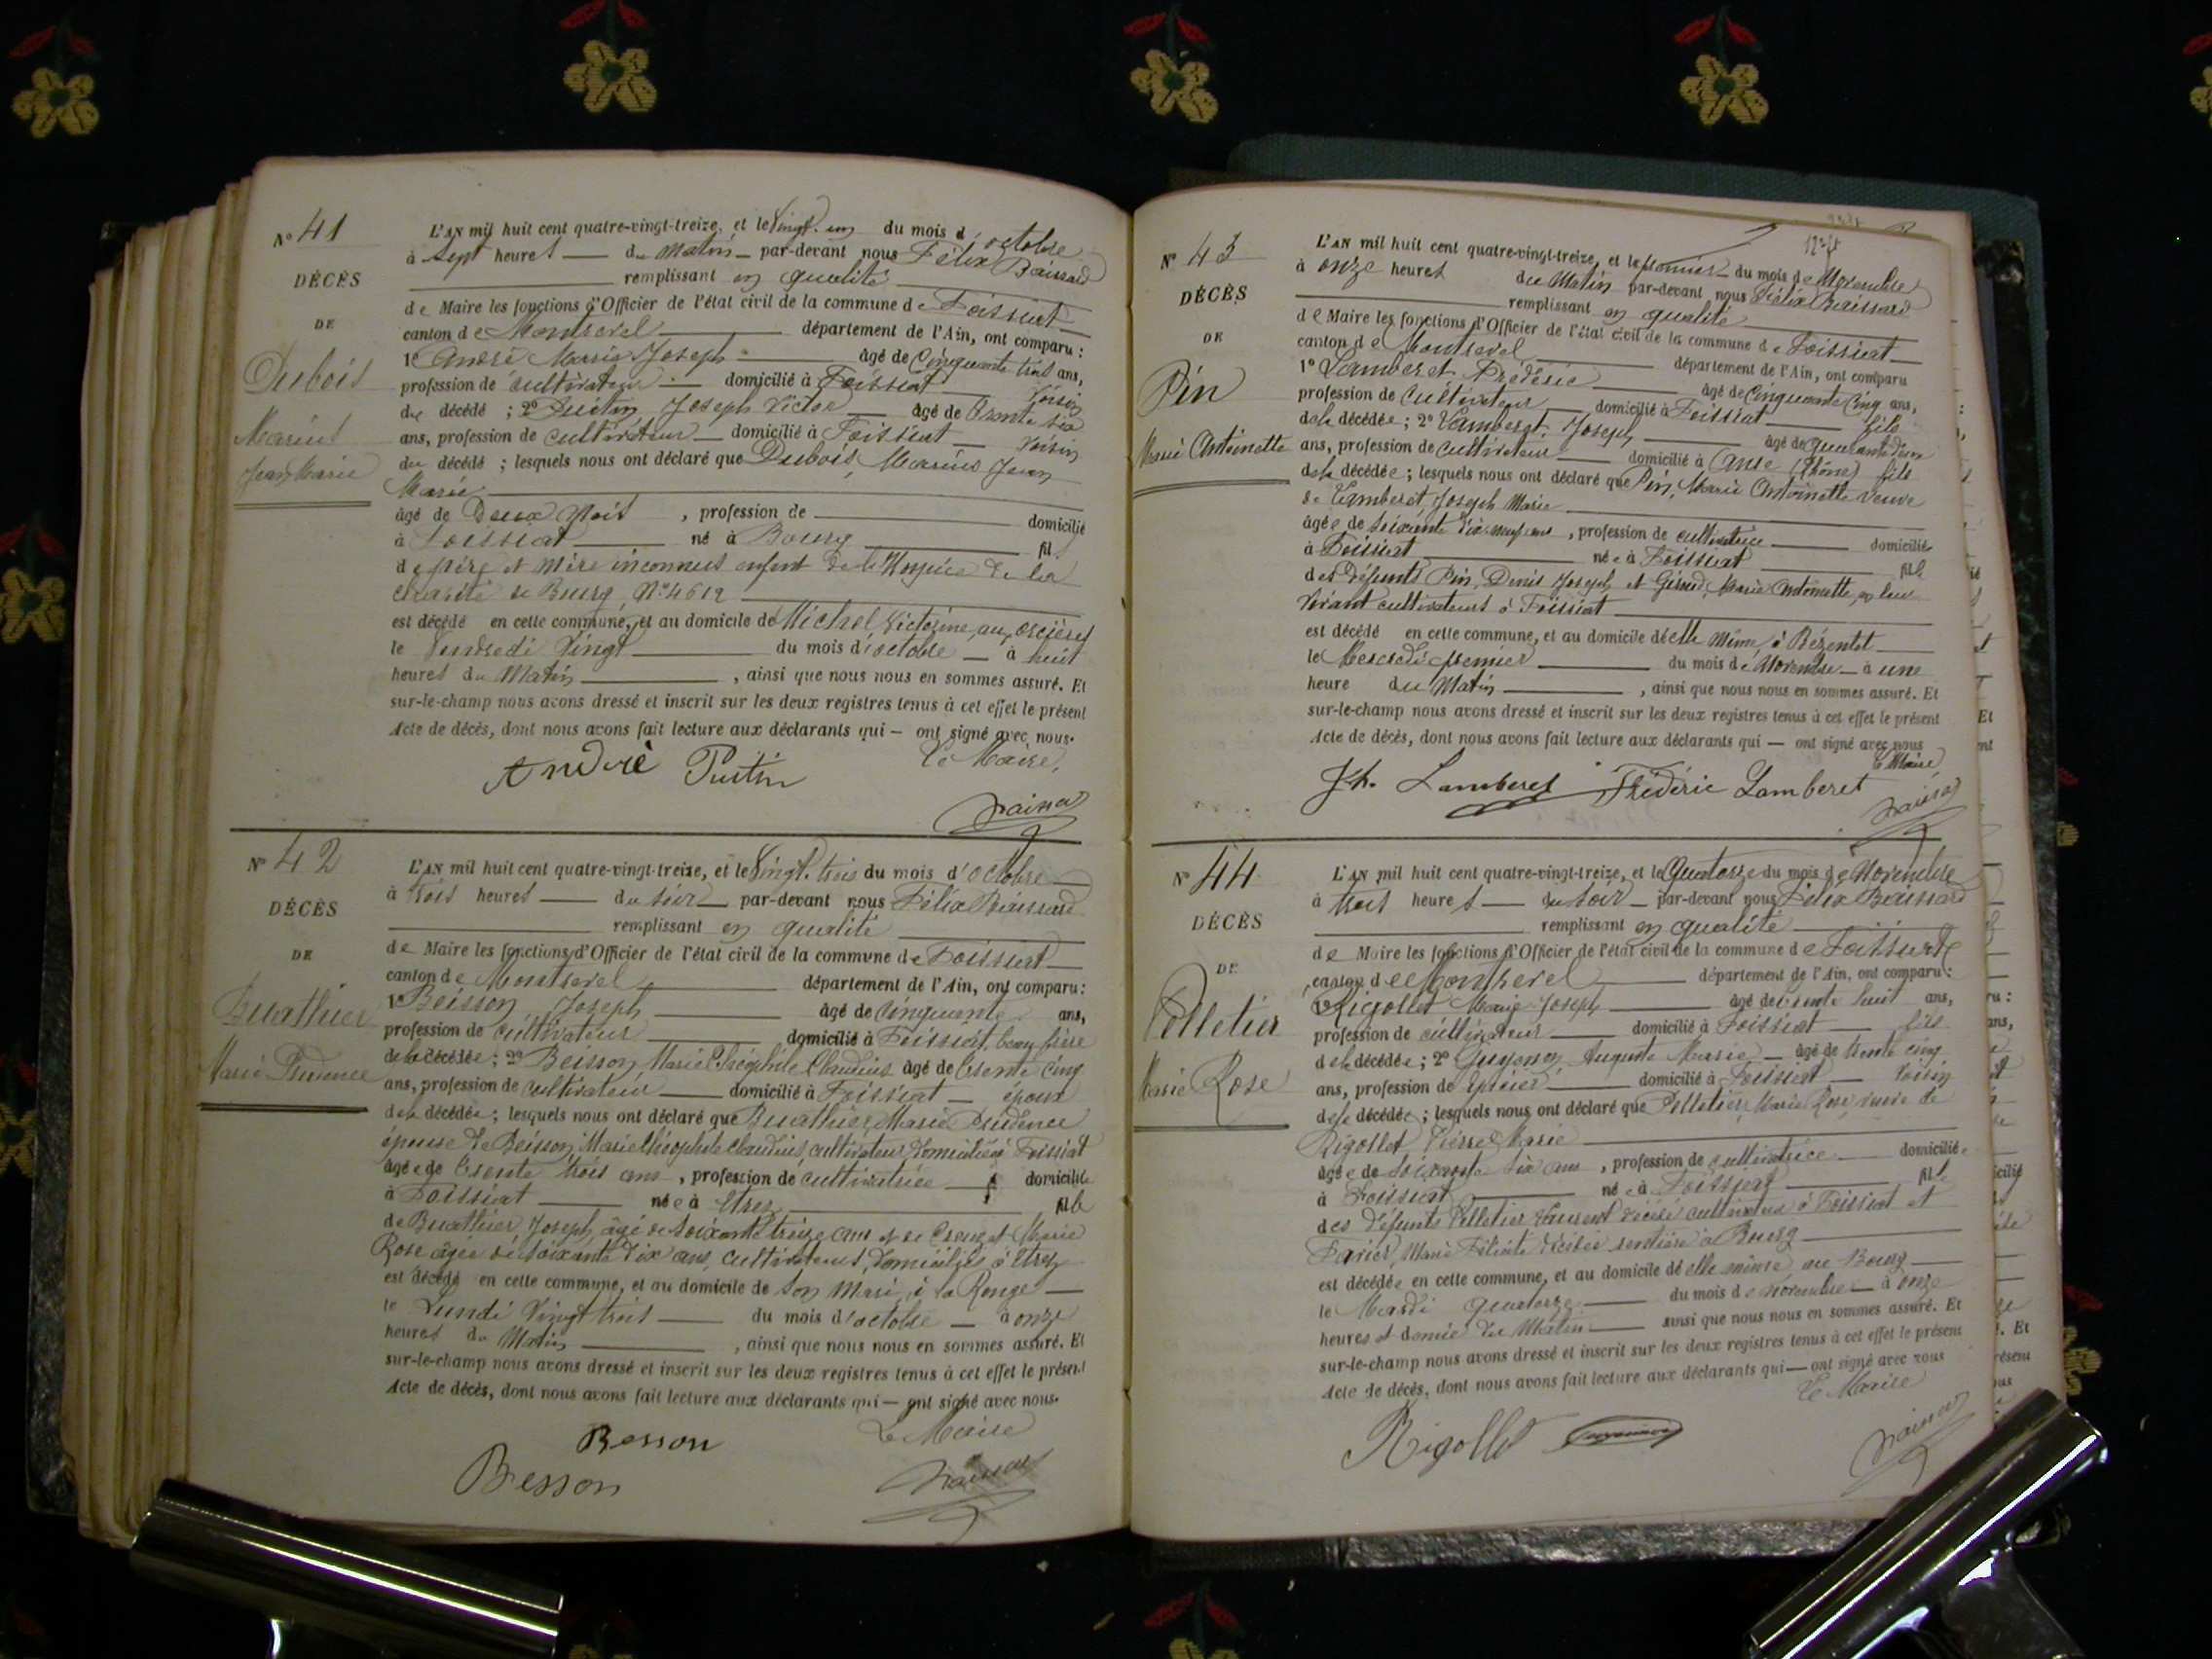 N° 41
DÉCÈS
DE
Dubois
Marius
Jean Marie
L'AN mil huit cent quatre-vingt-treize, et le Vingt-un du mois d'octobre
à Sept heures du Matin par-devant nous Félix Baissard
remplissant en qualité
de Maire les fonctions d'Officier de l'état civil de la commune de Foissiat
canton de Montrevel département de l'Ain, ont comparu :
1° André Marie Joseph âgé de Cinquante trois ans,
profession de cultivateur domicilié à Foissiat voisin
du décédé ; 2° Joseph Victor âgé de trente six
ans, profession de cultivateur domicilié à Foissiat voisin
du décédé ; lesquels nous ont déclaré que Dubois, Marius Jean
Marie
âgé de Deux Mois, profession de domicilié
à Foissiat né à Bourg fils
de père et mère inconnus enfant de l'Hospice de la
charité de Bourg, N° 4612
est décédé en cette commune, et au domicile de Michel Victorine, aux
le Vendredi Vingt du mois d'octobre à huit
heures du Matin, ainsi que nous nous en sommes assuré. Et
sur-le-champ nous avons dressé et inscrit sur les deux registres tenus à cet effet le présent
Acte de décès, dont nous avons fait lecture aux déclarants qui — ont signé avec nous.
Le Maire,
André
N° 42
DÉCÈS
DE
Buathier
Marie Prudence
L'AN mil huit cent quatre-vingt-treize, et le Vingt-trois du mois d'octobre
à trois heures du soir par-devant nous Félix Baissard
remplissant en qualité
de Maire les fonctions d'Officier de l'état civil de la commune de Foissiat
canton de Montrevel département de l'Ain, ont comparu :
1° Besson, Joseph âgé de Cinquante ans,
profession de cultivateur domicilié à Foissiat, beau frère
de la décédée ; 2° Besson, Marie Théophile Claudius âgé de trente cinq
ans, profession de cultivateur domicilié à Foissiat époux
de la décédée ; lesquels nous ont déclaré que Buathier Marie Prudence
épouse de Besson, Marie Théophile Claudius, cultivateur domicilié à Foissiat
âgée de trente trois ans, profession de cultivatrice domiciliée
à Foissiat née à Etrez fille
de Buathier Joseph, âgé de soixante treize ans et de Marie
Rose âgée de soixante dix ans, cultivateurs, domiciliés à Etrez
est décédé en cette commune, et au domicile de son mari, à la Ronge
le Lundi Vingt trois du mois d'octobre à onze
heures du Matin, ainsi que nous nous en sommes assuré. Et
sur-le-champ nous avons dressé et inscrit sur les deux registres tenus à cet effet le présent
Acte de décès, dont nous avons fait lecture aux déclarants qui — ont signé avec nous.
Le Maire
Besson
Besson
N° 43
DÉCÈS
DE
Pin
Marie Antoinette
L'AN mil huit cent quatre-vingt-treize, et le premier du mois de Novembre
à onze heures du Matin par-devant nous Félix Baissard
remplissant en qualité
de Maire les fonctions d'Officier de l'état civil de la commune de Foissiat
canton de Montrevel département de l'Ain, ont comparu
1° Lamberet Frédéric âgé de Cinquante Cinq ans,
profession de Cultivateur domicilié à Foissiat fils
de la décédée ; 2° Lamberet, Joseph âgé de quarante deux
ans, profession de cultivateur domicilié à Anse (Rhône) fils
de la décédée ; lesquels nous ont déclaré que Pin, Marie Antoinette veuve
de Lamberet, Joseph Marie
âgée de soixante dix-neuf ans, profession de cultivatrice domiciliée
à Foissiat née à Foissiat fille
des défunts Pin, Denis Joseph et Marie Antoinette, en leur
vivant cultivateurs à Foissiat
est décédé en cette commune, et au domicile d'elle même, à Bézentet
le Mercredi premier du mois de Novembre à une
heure du Matin, ainsi que nous nous en sommes assuré. Et
sur-le-champ nous avons dressé et inscrit sur les deux registres tenus à cet effet le présent
Acte de décès, dont nous avons fait lecture aux déclarants qui — ont signé avec nous
Le Maire
Jh. Lamberet Frédéric Lamberet
N° 44
DÉCÈS
DE
Pelletier
Marie Rose
L'AN mil huit cent quatre-vingt-treize, et le Quatorze du mois de Novembre
à trois heures du soir par-devant nous Félix Baissard
remplissant en qualité
de Maire les fonctions d'Officier de l'état civil de la commune de Foissiat
canton de Montrevel département de l'Ain, ont comparu :
1° Rigollet Marie Joseph âgé de trente huit ans,
profession de cultivateur domicilié à Foissiat fils
de la décédée ; 2° Guyonon Auguste Marie âgé de trente cinq
ans, profession de épicier domicilié à Foissiat voisin
de la décédée ; lesquels nous ont déclaré que Pelletier, Marie Rose, veuve de
Rigollet Pierre Marie
âgée de soixante six ans, profession de cultivatrice domiciliée
à Foissiat née à Foissiat fille
des défunts Pelletier Laurent décédé cultivateur à Foissiat et
Marie Félicité décédée rentière à Bourg
est décédée en cette commune, et au domicile d'elle même au Bourg
le Mardi quatorze du mois de novembre à onze
heures et demie du Matin ainsi que nous nous en sommes assuré. Et
sur-le-champ nous avons dressé et inscrit sur les deux registres tenus à cet effet le présent
Acte de décès, dont nous avons fait lecture aux déclarants qui — ont signé avec nous
Le Maire
Rigollet